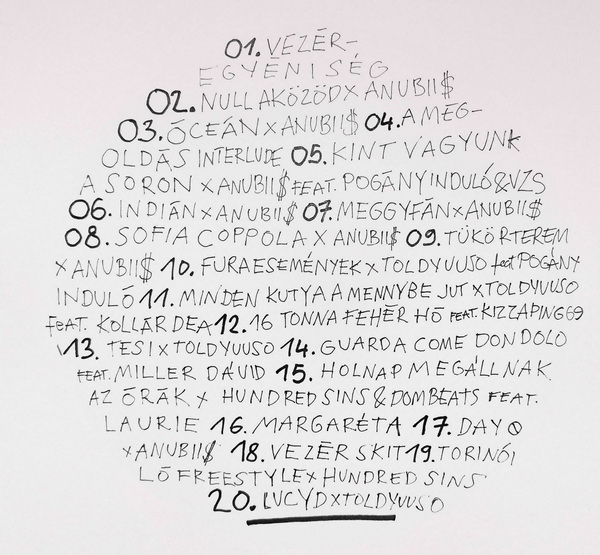 01. VEZÉR-
EGYÉNISÉG
02. NULLAKÖZÖD X ANUBII$
03. ÓCEÁN X ANUBII$ 04. A MEG-
OLDÁS INTERLUDE 05. KINT VAGYUNK
A SORON X ANUBII$ FEAT. POGÁNYINDULÓ & VZS
06. INDIÁN X ANUBII$ 07. MEGGYFÁN X ANUBII$
08. SOFIA COPPOLA X ANUBII$ 09. TÜKÖRTEREM
X ANUBII$ 10. FURAESEMÉNYEK X TOLDYUUSO feat POGÁNY
INDULÓ 11. MINDEN KUTYA A MENNYBE JUT X TOLDYUUSO
FEAT. KOLLÁR DEA 12. 16 TONNA FEHÉR HÓ FEAT. KIZZAPING69
13. TESI X TOLDYUUSO 14. GUARDA COME DONDOLO
FEAT. MILLER DÁVID 15. HOLNAP MEGÁLLNAK
AZ ÓRÁK X HUNDRED SINS & DOMBEATS FEAT.
LAURIE 16. MARGARÉTA 17. DAY 0
X ANUBII$ 18. VEZÉR SKIT 19. TORINÓI
LÓ FREESTYLE X HUNDRED SINS
20. LUCYD X TOLDYUUSO